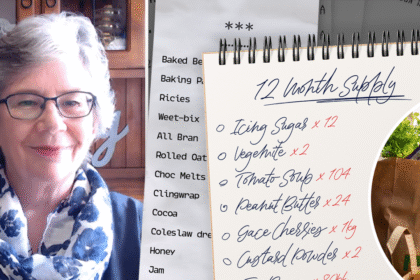 ***
Baked Be
Baking P
Ricies
Weet-bix
All Bran
Rolled Oat
Choc Melts
Clingwrap
Cocoa
Coleslaw dre
Honey
Jam
12 Month Supply
Icing Sugar x 12
Vegemite x 2
Tomato Soup x 104
Peanut Butter x 24
Gace Cherries x 1kg
Custard Powder x 2